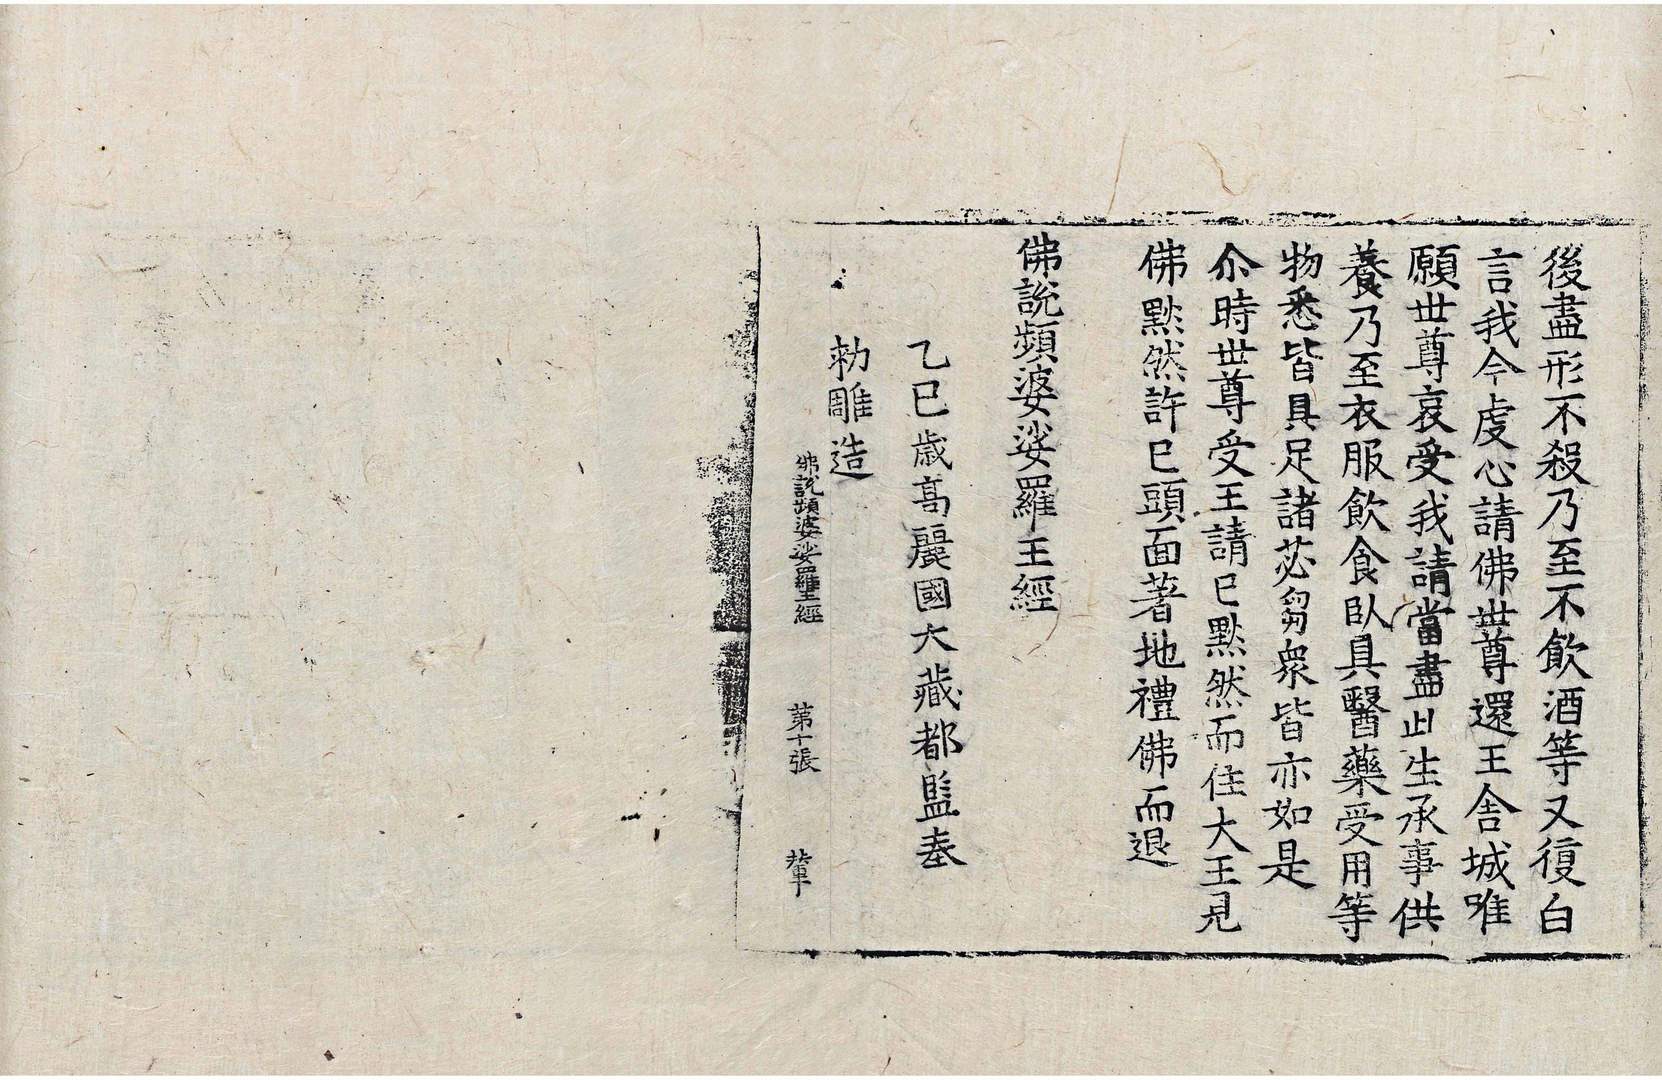 後盡形不殺乃至不飲酒等又復白
言我今虔心請佛世尊還王舍城唯
願世尊哀受我請當盡此生承事供
養乃至衣服飲食臥具醫藥受用等
物悉皆具足諸苾芻衆皆亦如是
尒時世尊受王請已默然而住大王見
佛默然許已頭面著地禮佛而退
佛說頻婆娑羅王經
乙巳歲高麗國大藏都監奉
勅雕造
佛說頻婆娑羅王經 第十張 輦